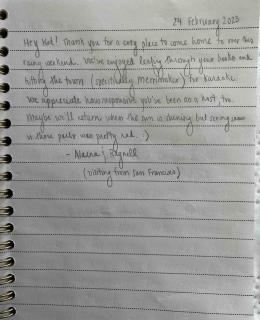 24 February 2023
Hey Kat! Thank you for a cozy place to come home to over this
rainy weekend. We've enjoyed leafing through your books and
hitting the town (specifically Merrimaker) for karaoke.
We appreciate how responsive you've been as a host, too.
Maybe we'll return when the sun is shining but seeing snow
in these parts was pretty rad. :)
- &
(visiting from San Francisco)